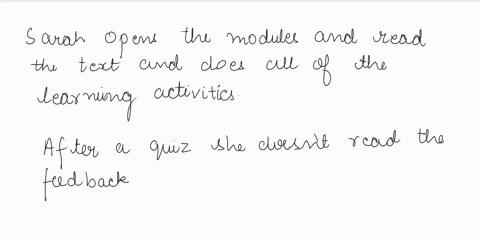 Sarah opens the modules and read
the text and does all of the
learning activities.
After a quiz she doesn't read the
feedback